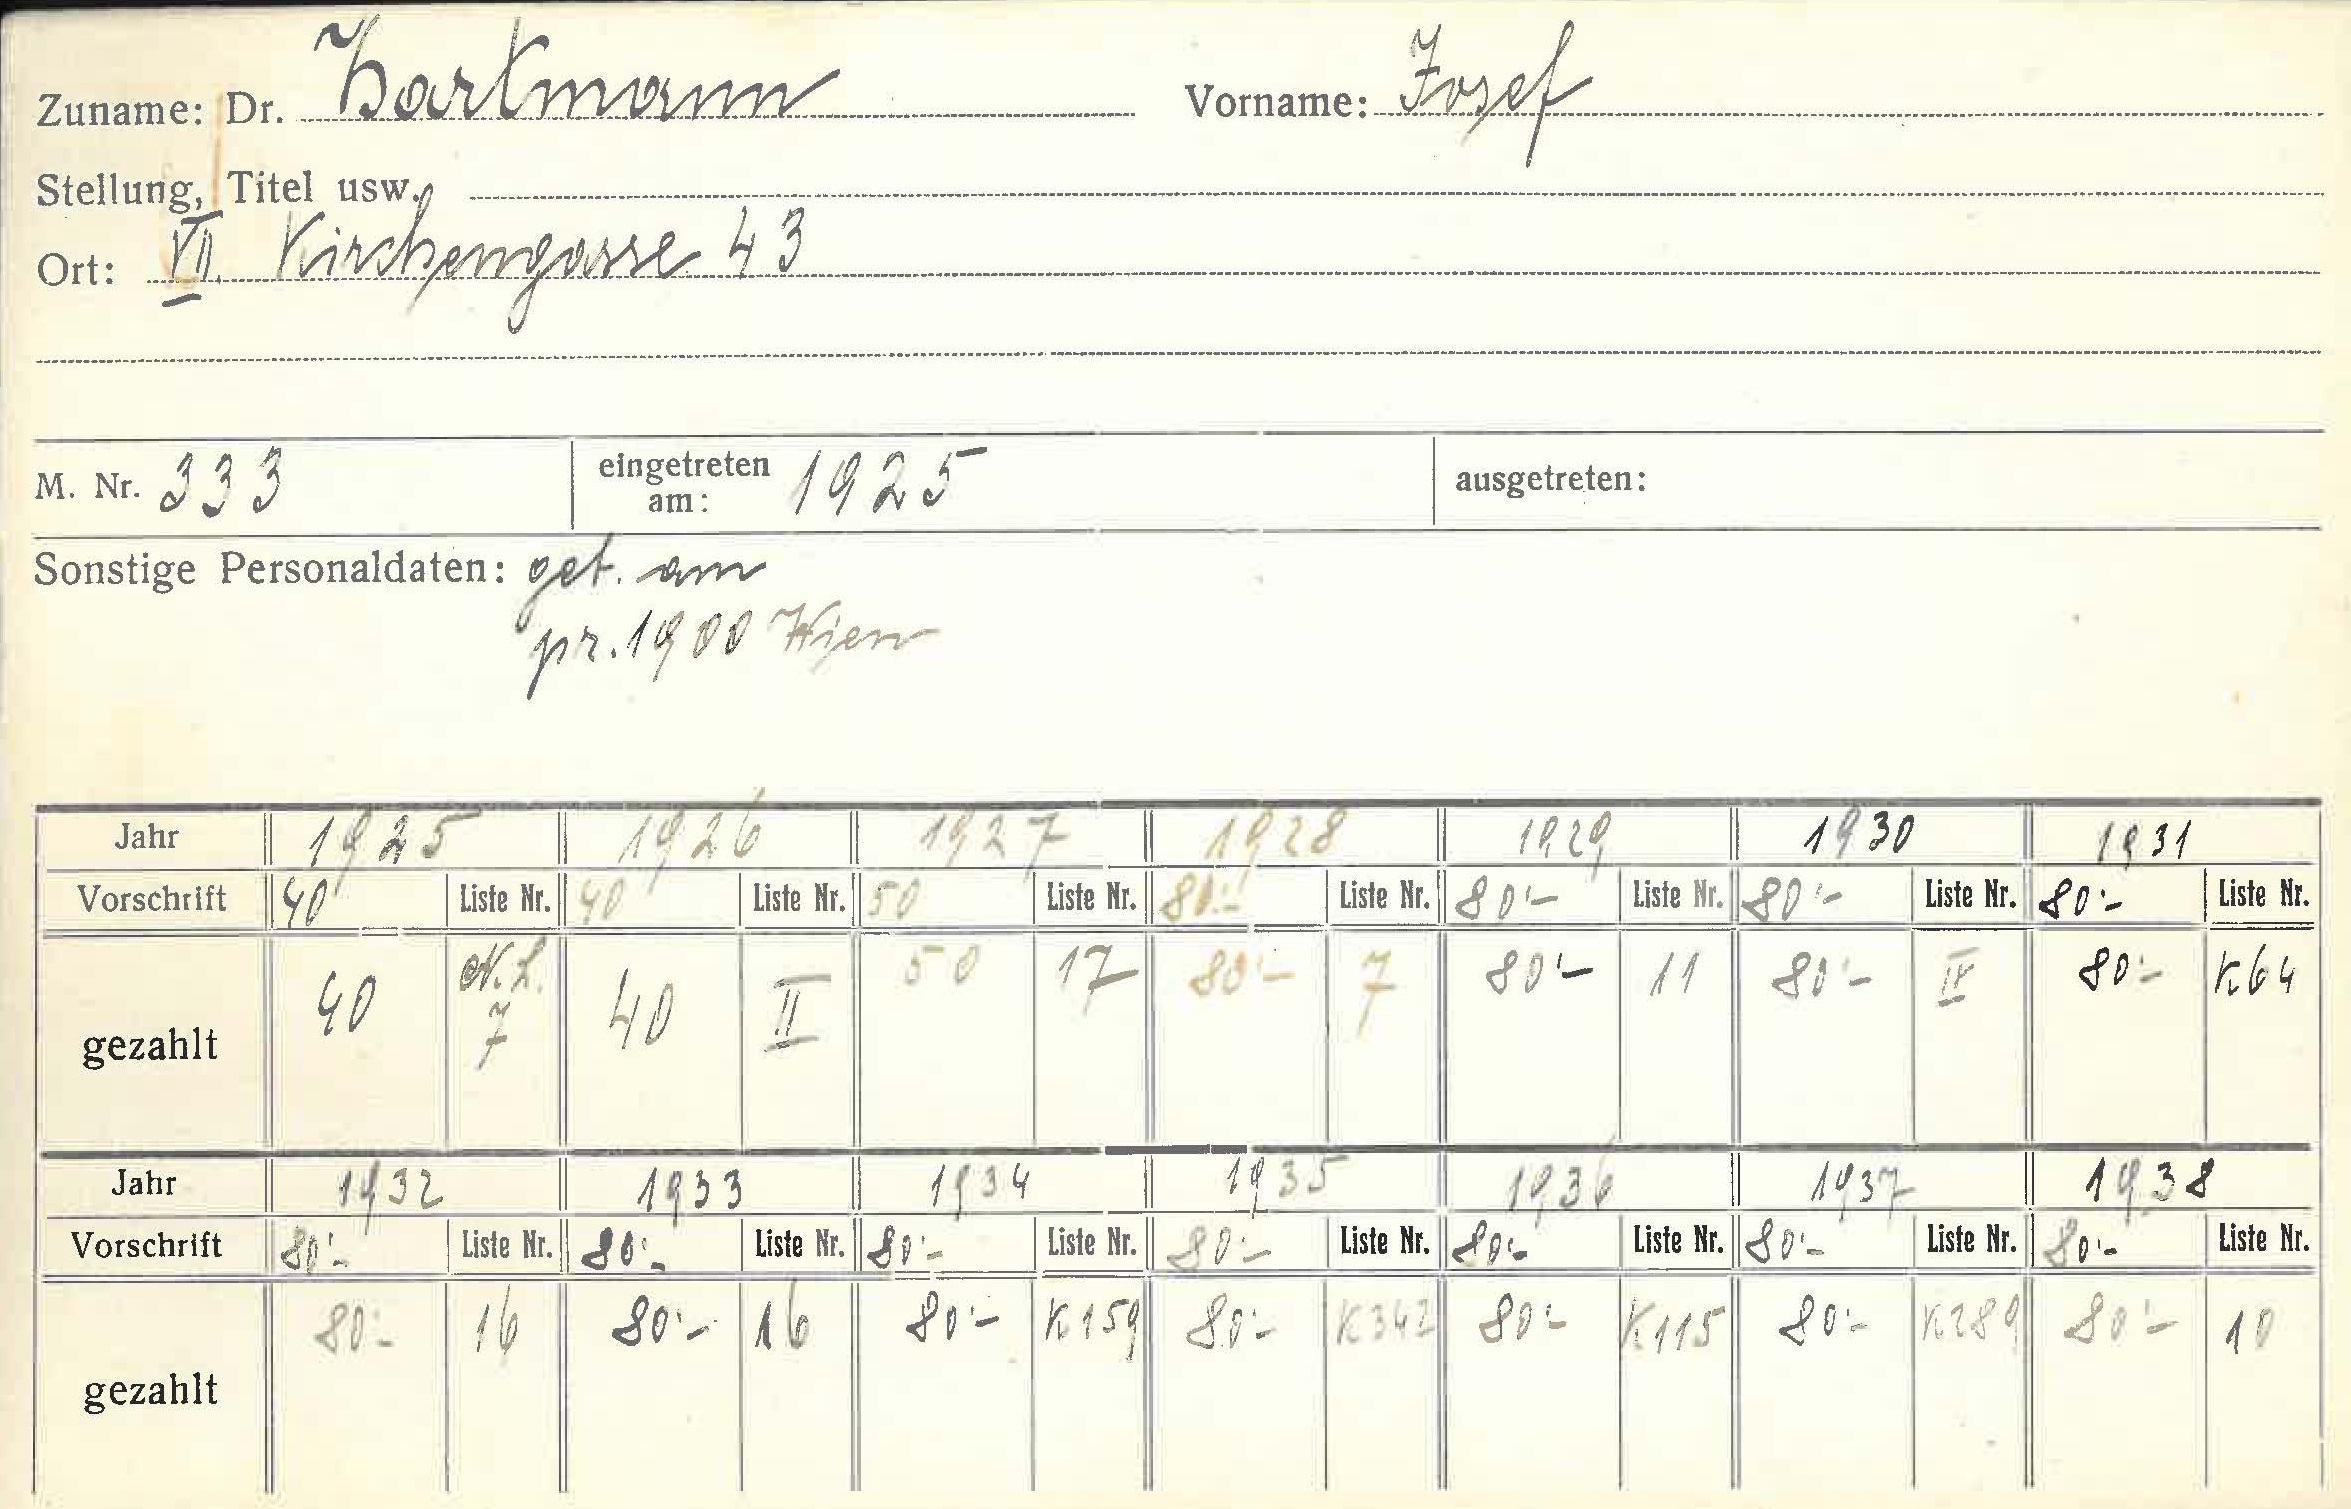 Zuname: Dr. Hartmann Vorname: Josef
Stellung, Titel usw.
Ort: VII. Kirchengasse 43
M. Nr. 333 eingetreten am: 1925 ausgetreten:
Sonstige Personaldaten: geb. am
pr. 1900 Wien
Jahr 1925 1926 1927 1928 1929 1930 1931
Vorschrift 40 Liste Nr. 40 Liste Nr. 50 Liste Nr. 80'- Liste Nr. 80'- Liste Nr. 80'- Liste Nr. 80'- Liste Nr.
gezahlt 40 N.L. 7 40 II 50 17 80'- 7 80'- 11 80'- IV 80'- K64
Jahr 1932 1933 1934 1935 1936 1937 1938
Vorschrift 80'- Liste Nr. 80'- Liste Nr. 80'- Liste Nr. 80'- Liste Nr. 80'- Liste Nr. 80'- Liste Nr. 80'- Liste Nr.
gezahlt 80'- 16 80'- 16 80'- K159 80'- K342 80'- K115 80'- K289 80'- 10